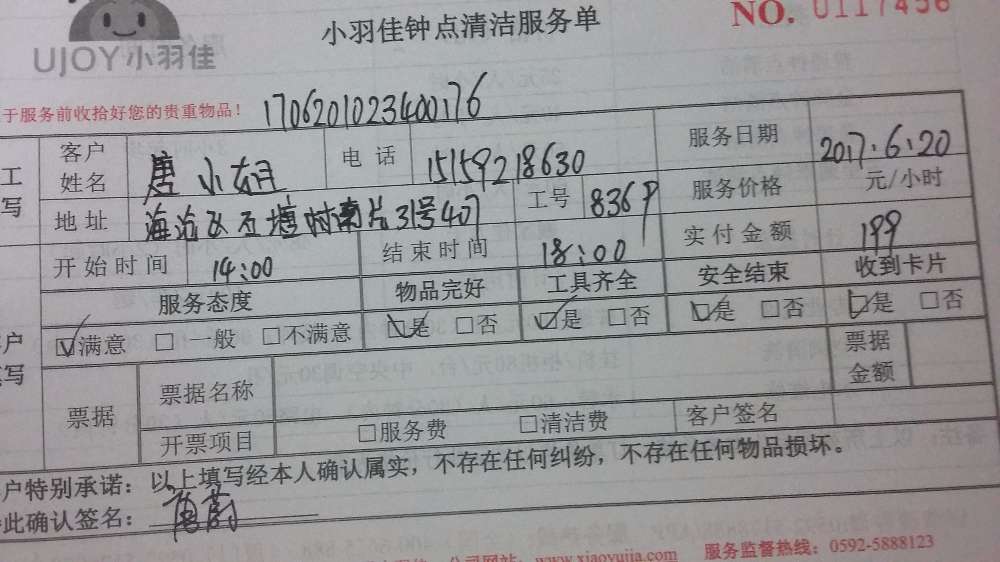 UJOY小羽佳
小羽佳钟点清洁服务单
NO. 0117456
于服务前收拾好您的贵重物品!
1706201023400176
工 客户姓名 唐小姐 电话 15159218630 服务日期 2017.6.20
写 地址 海沧区 村南片31号407 工号 836 服务价格 元/小时
开始时间 14:00 结束时间 18:00 实付金额 199
服务态度 物品完好 工具齐全 安全结束 收到卡片
户 ☑满意 □一般 □不满意 ☑是 □否 ☑是 □否 ☑是 □否 ☑是 □否
写 票据 票据名称 票据金额
开票项目 □服务费 □清洁费 客户签名
户特别承诺：以上填写经本人确认属实，不存在任何纠纷，不存在任何物品损坏。
此确认签名：
公司网站：www.xiaoyujia.com 服务监督热线：0592-5888123